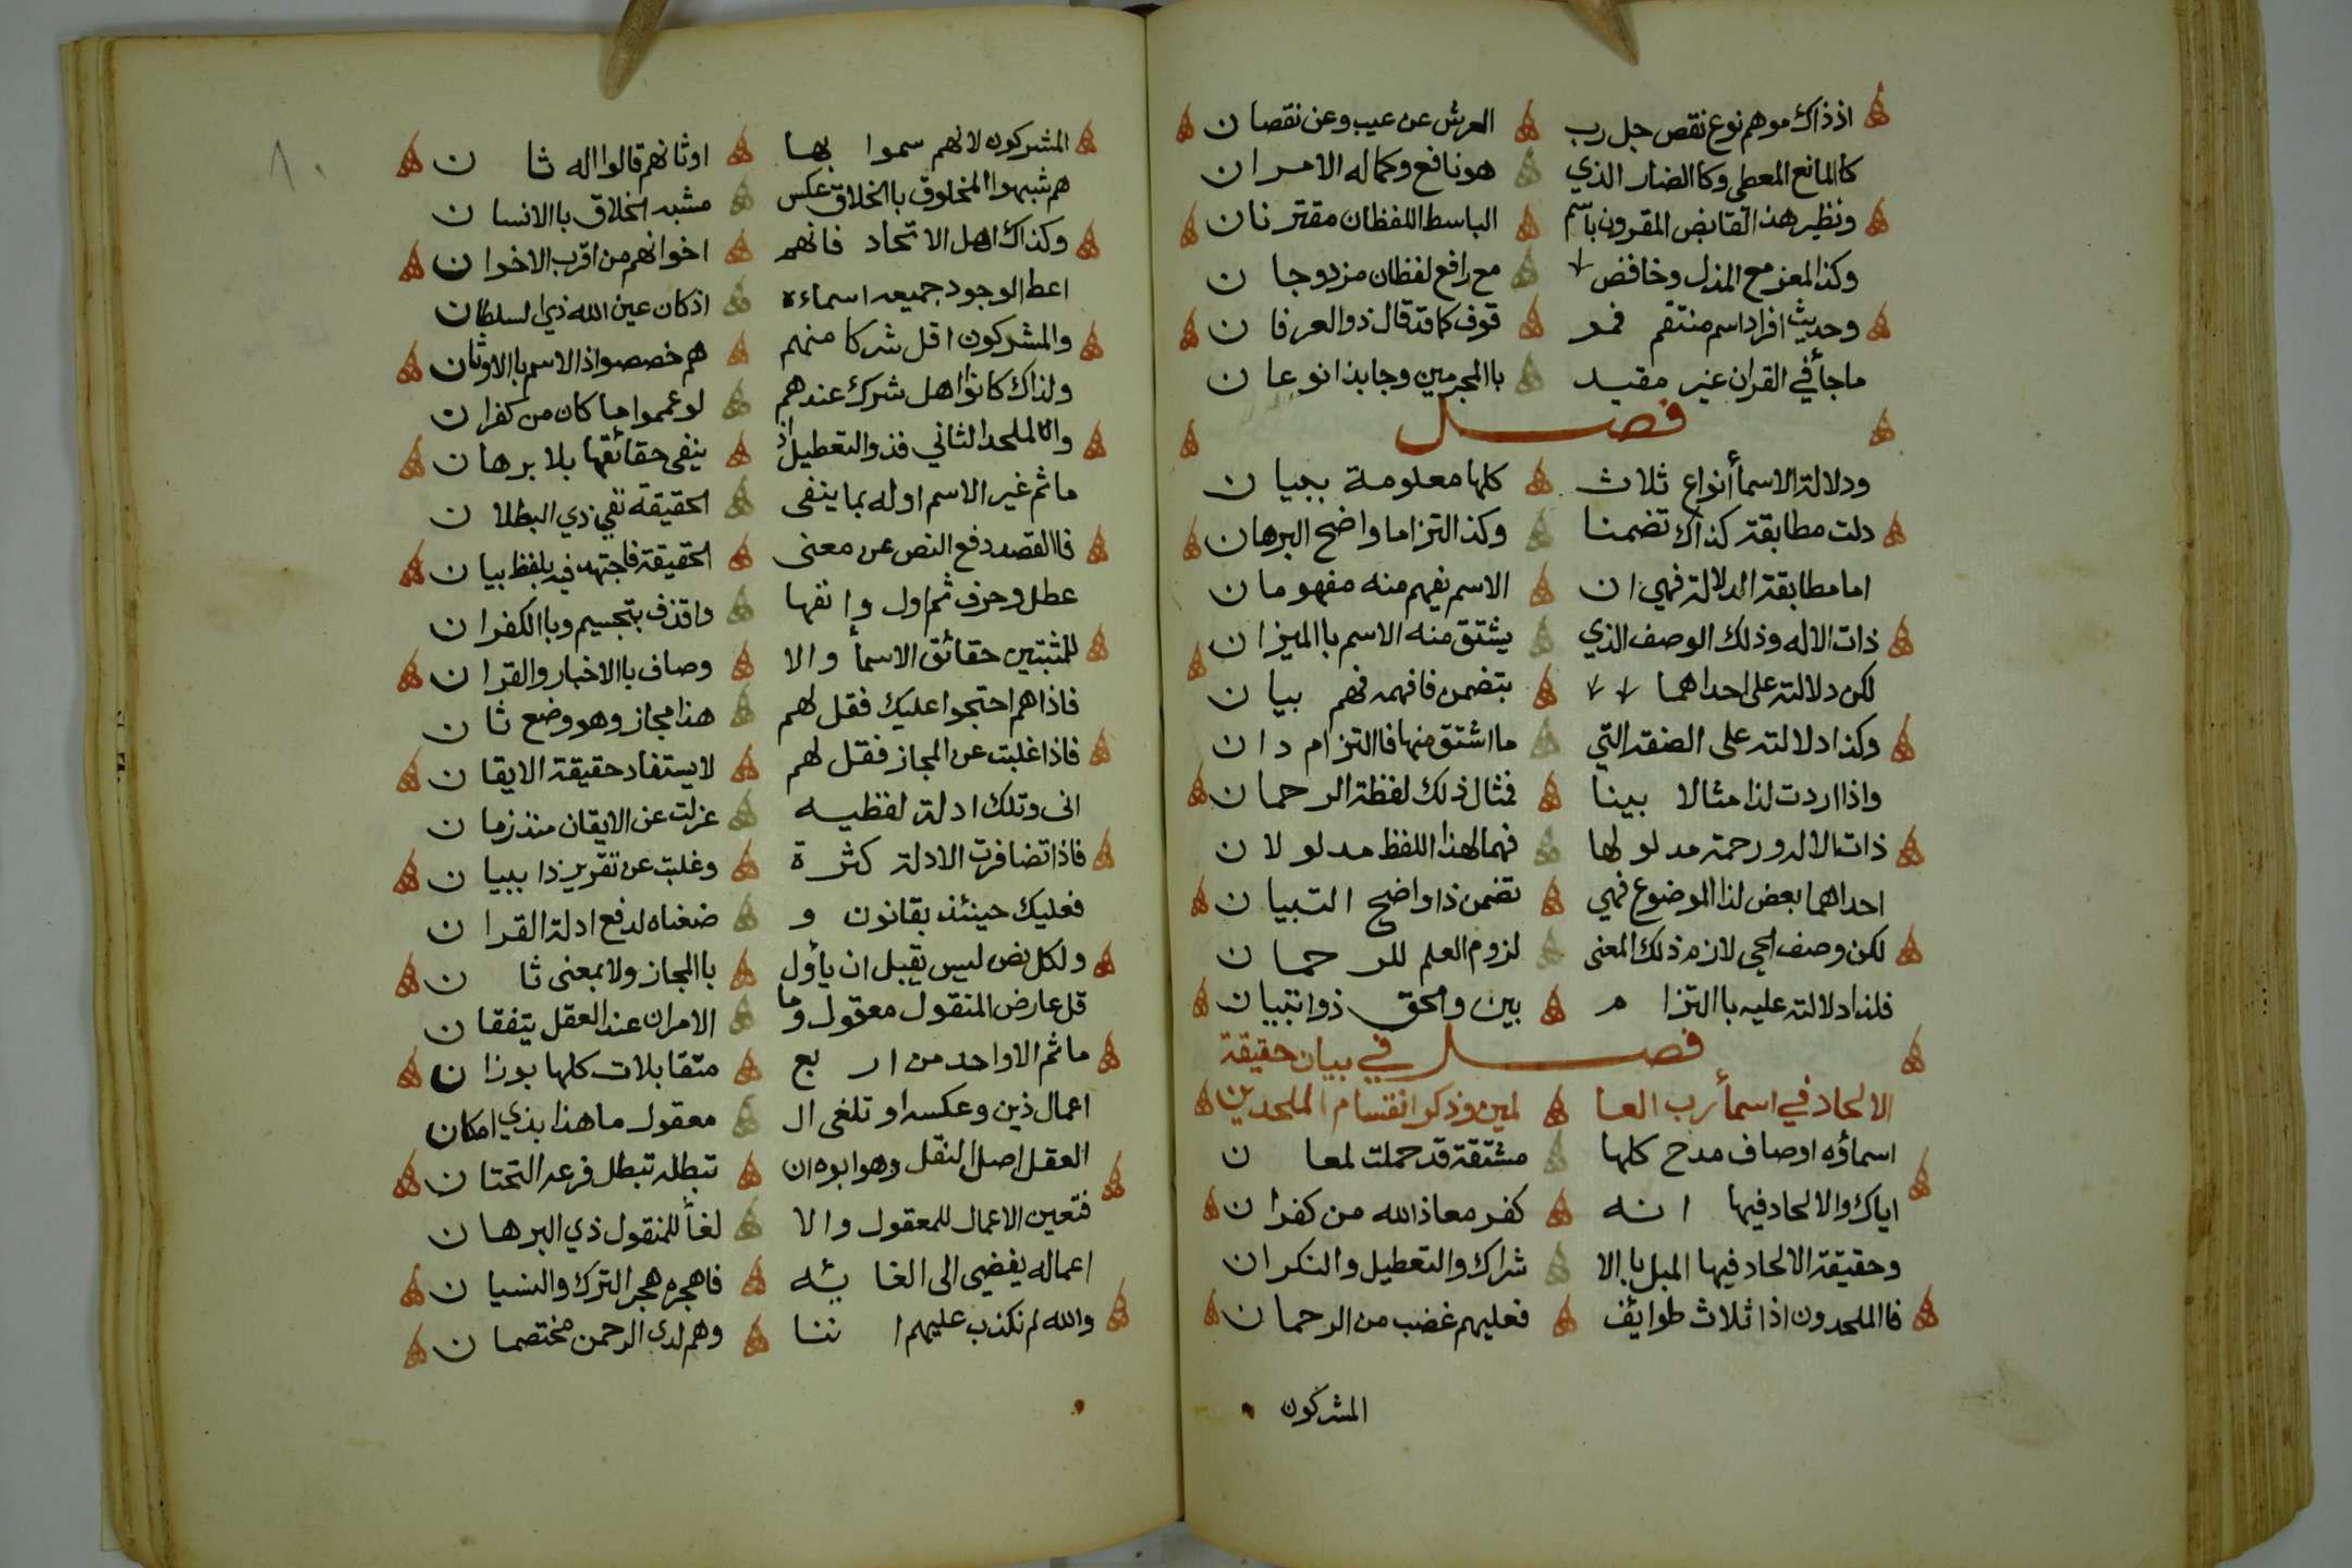 اذ ذاك موهم نوع نقص جل رب العرش عن عيب وعن نقصان
كا المانع المعطي وكا الضار الذي هو نافع وكماله الامران
ونظير هذا القابض المقرون باسم الباسط اللفظان مقترنان
وكذا المعز مع المذل وخافض مع رافع لفظان مزدوجان
وحديث افراد اسم منتقم فمو قوف كما قد قال ذو العرفان
ما جأ في القران غير مقيد با المجرمين وجا بذا نوعان
فصل
ودلالة الاسمأ أنواع ثلاث كلها معلومة ببيان
دلت مطابقة كذاك تضمنا وكذا التزاما واضح البرهان
اما مطابقة الدلالة فهي ان الاسم يفهم منه مفهومان
ذات الاله وذلك الوصف الذي يشتق منه الاسم با الميزان
لكن دلالته على احداهما بتضمن فافهمه فهم بيان
وكذا دلالته على الصفة التي ما اشتق منها فا التزام دان
واذا اردت لذا مثالا بينا فمثال ذلك لفظة الرحمان
ذات الاله ورحمة مدلولها فهما لهذا اللفظ مدلولان
احداهما بعض لذا الموضوع فهي تضمن ذا واضح التبيان
لكن وصف الحي لازم ذلك المعنى لزوم العلم للرحمان
فلذا دلالته عليه با التزام بين والحق ذو اتبيان
فصل في بيان حقيقة
الالحاد في اسمأ رب العا لمين وذكر انقسام الملحدين
اسماؤه اوصاف مدح كلها مشتقة قد حملت لمعان
اياك والالحاد فيها انه كفر معاذ الله من كفران
وحقيقة الالحاد فيها الميل با الا شراك والتعطيل والنكران
فا الملحدون اذا ثلاث طوايف فعليهم غضب من الرحمان
المشركون
٨٠
المشركون لانهم سموا بها اوثانهم قالوا اله ثان
هم شبهوا المخلوق با الخلاق عكس مشبه الخلاق با الانسان
وكذاك اهل الاتحاد فانهم اخوانهم من اقرب الاخوان
اعط الوجود جميعه اسماءه اذ كان عين الله ذي السلطان
والمشركون اقل شركا منهم هم خصصوا ذا الاسم با الاوثان
ولذاك كانوا اهل شرك عندهم لو عمموا ما كان من كفران
والملحد الثاني فذو التعطيل اذ ينفي حقائقها بلا برهان
ما ثم غير الاسم اوله بما ينفى الحقيقة نفي ذي البطلان
فا القصد دفع النص عن معنى الحقيقة فاجتهد فيه بلفظ بيان
عطل وحرف ثم اول وانفها واقذف بتجسيم وبا الكفران
للمثبتين حقائق الاسمأ والا وصاف با الاخبار والقران
فاذا هم احتجوا عليك فقل لهم هذا مجاز وهو وضع ثان
فاذا غلبت عن المجاز فقل لهم لا يستفاد حقيقة الايقان
انى وتلك ادلة لفظيه عزلت عن الايقان منذ زمان
فاذا تضافرت الادلة كثرة وغلبت عن تقرير ذا ببيان
فعليك حينئذ بقانون و ضعناه لدفع ادلة القران
ولكل نص ليس يقبل ان يأول با المجاز ولا بمعنى ثان
قل عارض المنقول معقول وما الامران عند العقل يتفقان
ما ثم الا واحد من اربع متقابلات كلها بوزان
اعمال ذين وعكسه او تلغى ال معقول ما هذا بذي امكان
العقل اصل النقل وهو ابوه ان تبطله تبطل فرعه التحتان
فتعين الاعمال للمعقول والا لغأ للمنقول ذي البرهان
اعماله يفضي الى الغائه فاهجره هجر الترك والنسيان
والله لم نكذب عليهم اننا وهم لدى الرحمن مختصمان